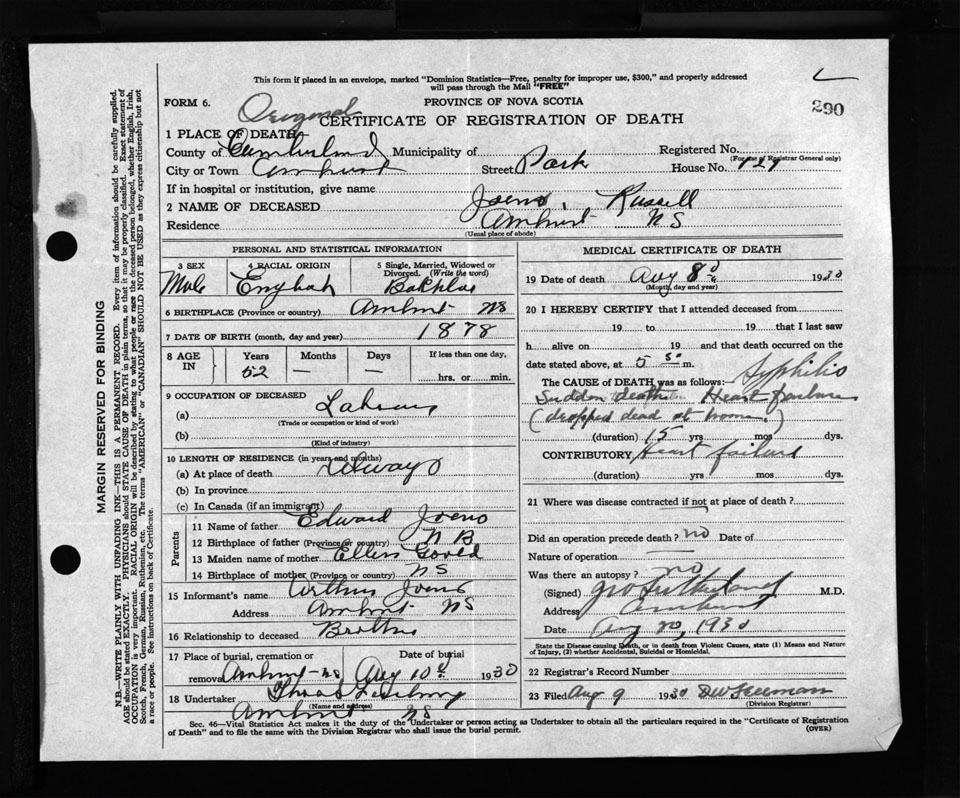 This form if placed in an envelope, marked "Dominion Statistics—Free, penalty for improper use, $300," and properly addressed
will pass through the Mail "FREE"
FORM 6.
Original
PROVINCE OF NOVA SCOTIA
290
CERTIFICATE OF REGISTRATION OF DEATH
1 PLACE OF DEATH
County of Cumberland Municipality of Registered No.
(For use of Registrar General only)
City or Town Amherst Street Park House No.
If in hospital or institution, give name
2 NAME OF DECEASED Russell
Residence Amherst NS
(Usual place of abode)
PERSONAL AND STATISTICAL INFORMATION
3 SEX
Male
4 RACIAL ORIGIN
English
5 Single, Married, Widowed or
Divorced. (Write the word)
6 BIRTHPLACE (Province or country) Amherst NS
7 DATE OF BIRTH (month, day and year) 1878
8 AGE
IN
Years
52
Months
—
Days
—
If less than one day,
hrs. or min.
9 OCCUPATION OF DECEASED
(a)
(Trade or occupation or kind of work)
(b)
(Kind of industry)
10 LENGTH OF RESIDENCE (in years and months)
(a) At place of death Always
(b) In province
(c) In Canada (if an immigrant)
Parents
11 Name of father Edward
12 Birthplace of father (Province or country) N B
13 Maiden name of mother Ellen
14 Birthplace of mother (Province or country) NS
15 Informant's name
Address Amherst NS
16 Relationship to deceased Brother
17 Place of burial, cremation or
removal Amherst NS
Date of burial
Aug 10 1930
18 Undertaker
(Name and address)
Amherst NS
MEDICAL CERTIFICATE OF DEATH
19 Date of death Aug 8 1930
(Month, day and year)
20 I HEREBY CERTIFY that I attended deceased from
19 to 19 that I last saw
h alive on 19 and that death occurred on the
date stated above, at 5 m.
The CAUSE of DEATH was as follows: Syphilis
Sudden death Heart failure
(dropped dead at home)
(duration) 15 yrs mos dys.
CONTRIBUTORY Heart failure
(duration) yrs mos dys.
21 Where was disease contracted if not at place of death?
Did an operation precede death? no Date of
Nature of operation
Was there an autopsy? no
(Signed) M.D.
Address Amherst
Date Aug 1930
State the Disease causing Death, or in death from Violent Causes, state (1) Means and Nature
of Injury, (2) whether Accidental, Suicidal or Homicidal.
22 Registrar's Record Number
23 Filed Aug 9 1930
(Division Registrar)
Sec. 46—Vital Statistics Act makes it the duty of the Undertaker or person acting as Undertaker to obtain all the particulars required in the "Certificate of Registration
of Death" and to file the same with the Division Registrar who shall issue the burial permit.
(OVER)
MARGIN RESERVED FOR BINDING
N.B.—WRITE PLAINLY WITH UNFADING INK—THIS IS A PERMANENT RECORD. Every item of information should be carefully supplied.
AGE should be stated EXACTLY. PHYSICIANS should STATE CAUSE OF DEATH in plain terms, so that it may be properly classified. Exact statement of
OCCUPATION is very important. RACIAL ORIGIN will be described by stating to what people or race the deceased person belonged, whether English, Irish,
Scotch, French, German, Russian, Ruthenian, etc. The terms "AMERICAN" or "CANADIAN" SHOULD NOT BE USED as they express citizenship but not
a race or people. See instructions on back of Certificate.